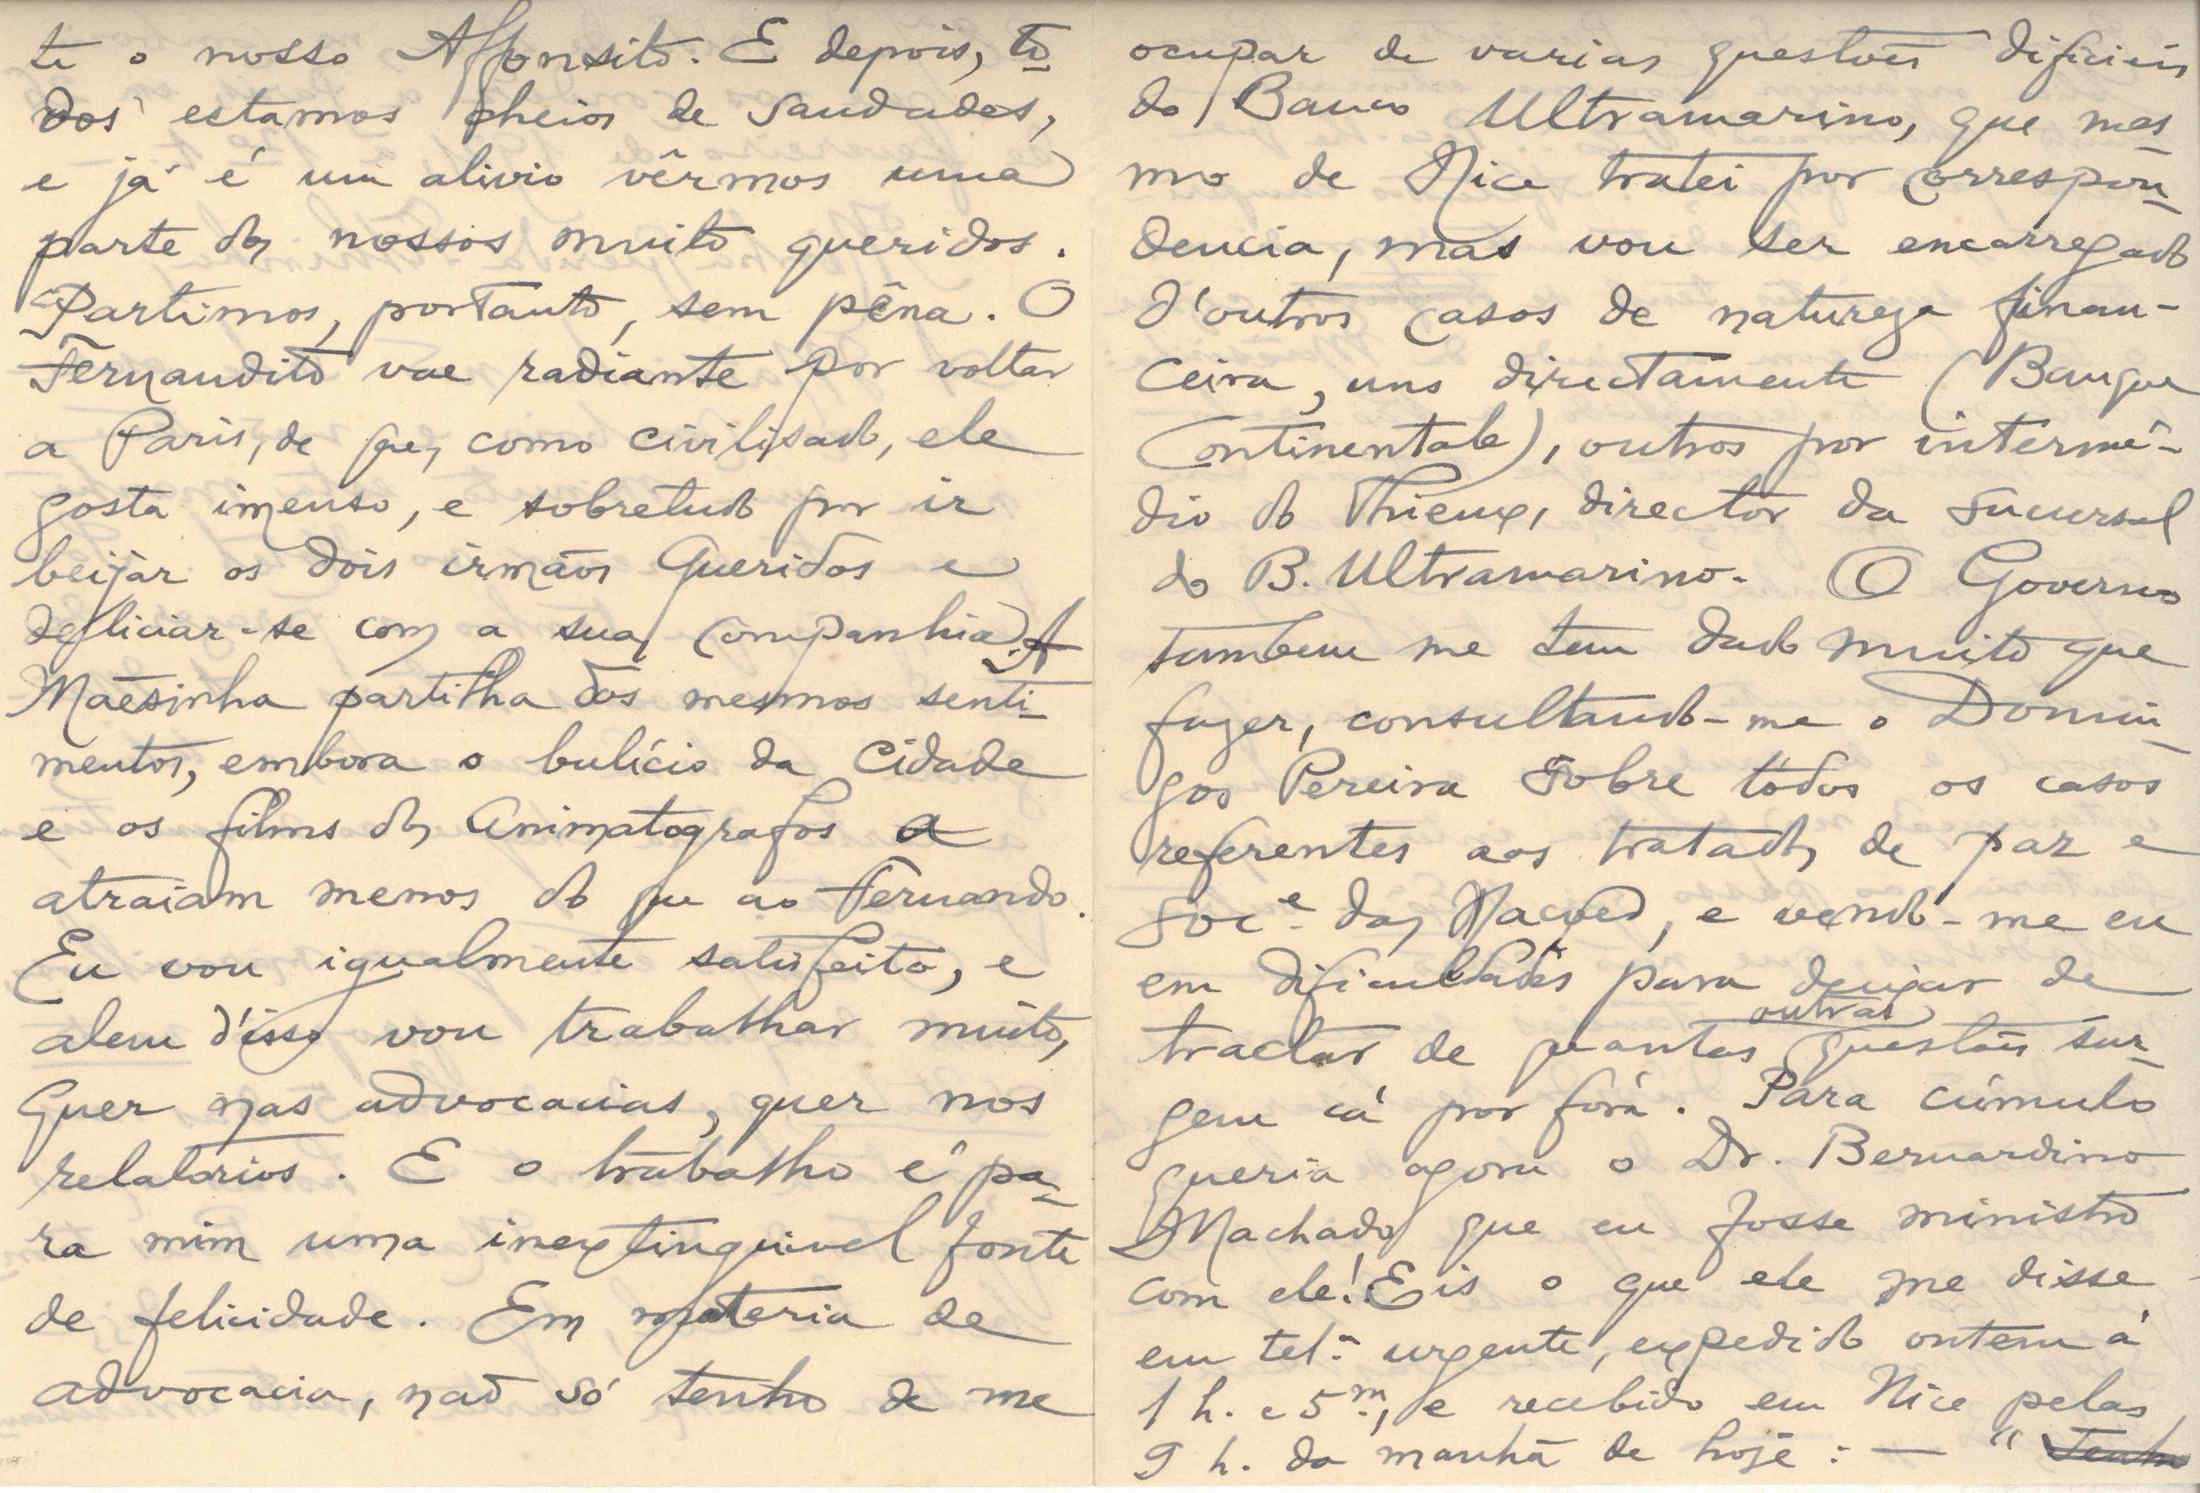 te o nosso Affonsito. E depois, to-
dos estamos cheios de saudades,
e já é um alivio vêrmos uma
parte dos nossos muito queridos.
Partimos, portanto, sem pêna. O
Fernandito vae radiante por voltar
a Paris, de que, como civilisado, ele
gosta imenso, e sobretudo por ir
beijar os dois irmãos queridos e
deliciar-se com a sua companhia. A
Mãesinha partilha dos mesmos senti-
mentos, embora o bulício da cidade
e os films dos animatografos a
atraiam menos do que ao Fernando.
Eu vou igualmente satisfeito, e
alem d'isso vou trabalhar muito,
quer nas advocacias, quer nos
relatorios. E o trabalho é pa-
ra mim uma inextinguivel fonte
de felicidade. Em materia de
advocacia, não só tenho de me
ocupar de varias questões dificieis
do Banco Ultramarino, que mes-
mo de Nice tratei por correspon-
dencia, mas vou ser encarregado
d'outros casos de natureza finan-
ceira, uns directamente (Banque
Continentale), outros por intermé-
dio do director da sucursal
do B. Ultramarino. O Governo
tambem me tem dado muito que
fazer, consultando-me o Domin-
gos Pereira sobre todos os casos
referentes aos tratados de paz e
Soc.e das Nações, e vendo-me eu
em dificuldades para deixar de
tractar de quantas outras questões sur-
gem cá por fóra. Para cúmulo
queria agora o Dr. Bernardino
Machado que eu fosse ministro
com ele! Eis o que ele me disse
em tel.a urgente, expedido ontem á
1 h. e 5 m., e recebido em Nice pelas
9 h. da manhã de hoje: — "